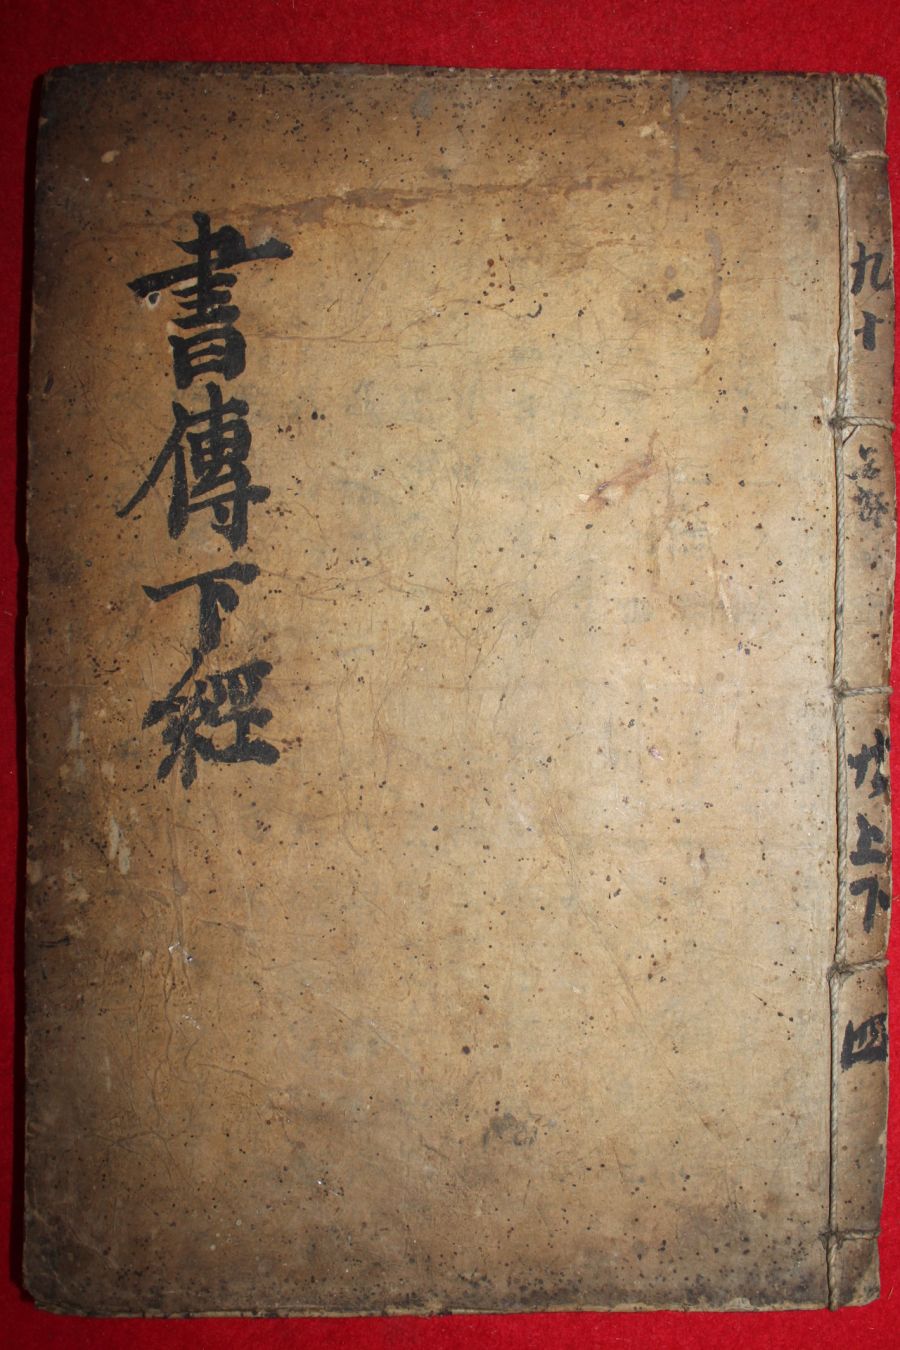 書傳下經
九十
上下
四